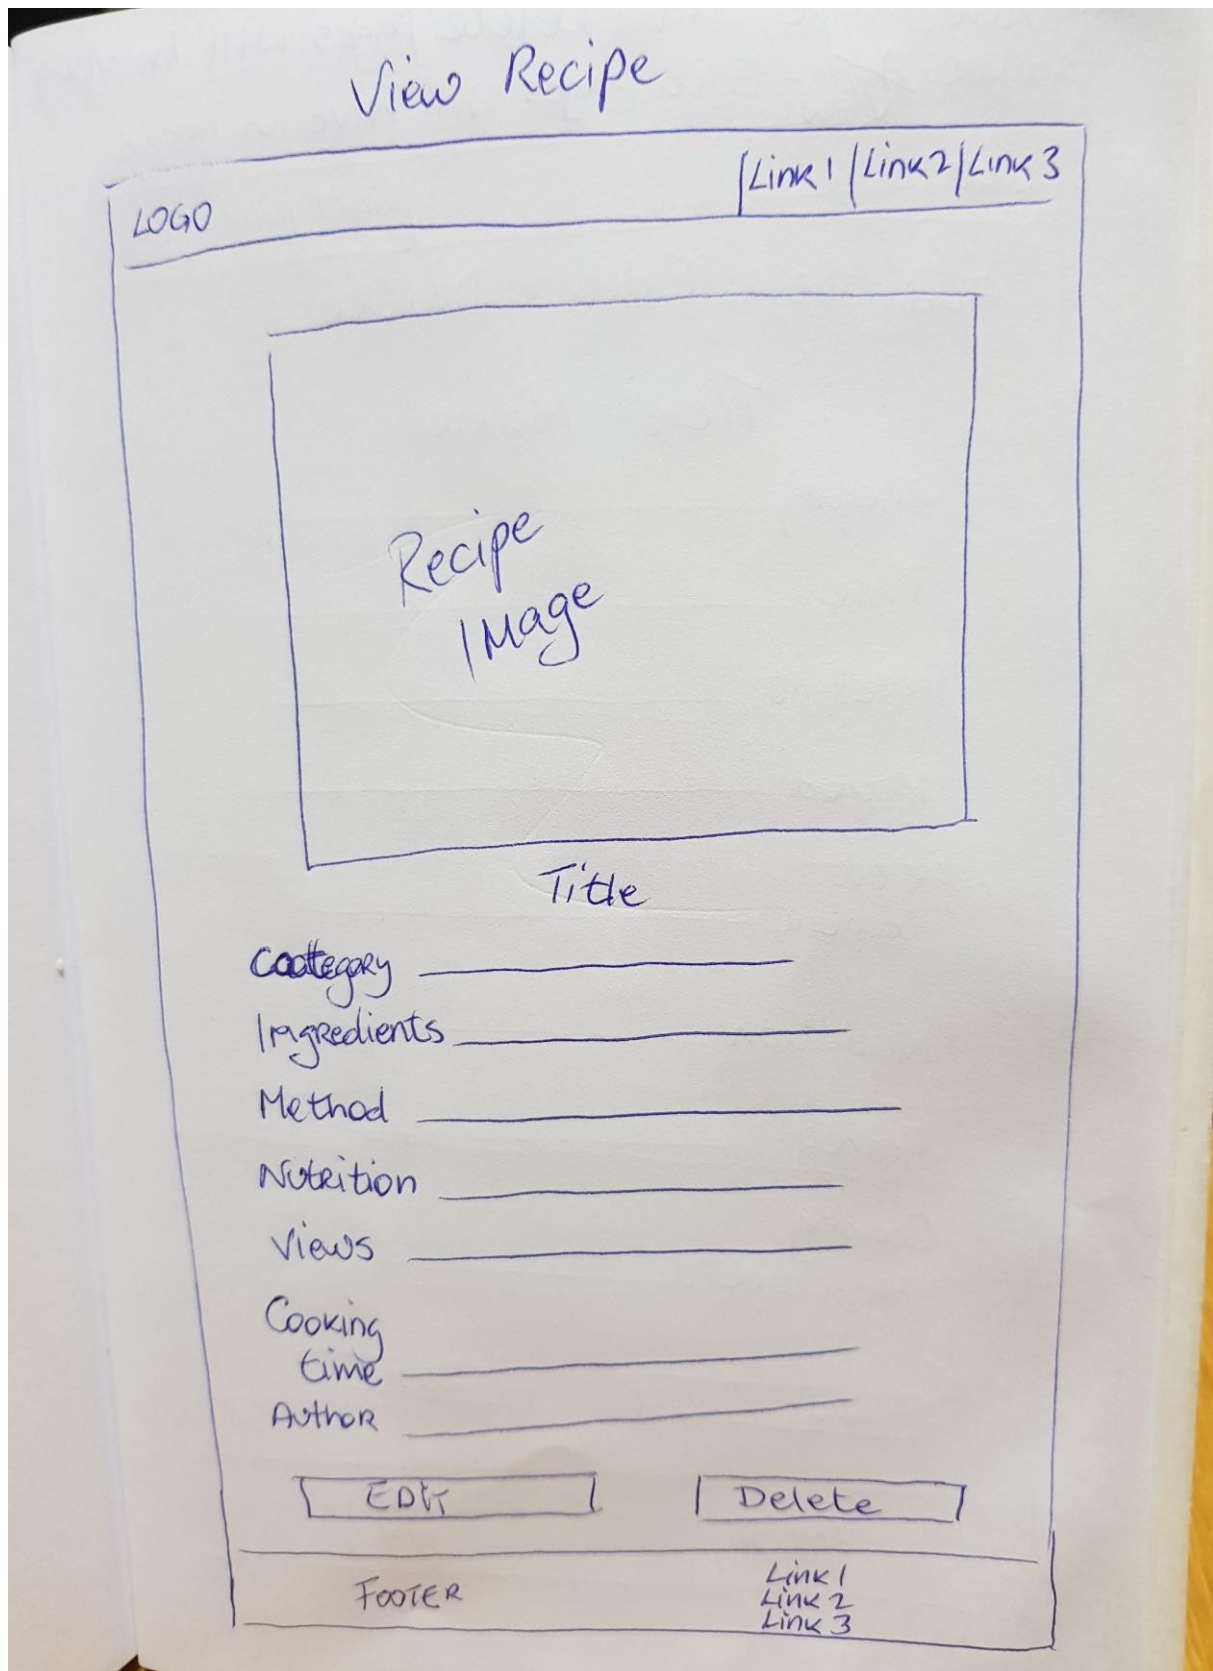 View Recipe
LOGO
Link 1 Link 2 Link 3
Recipe
Image
Title
Category
Ingredients
Method
Nutrition
Views
Cooking
time
Author
EDIT
Delete
FOOTER
Link 1
Link 2
Link 3